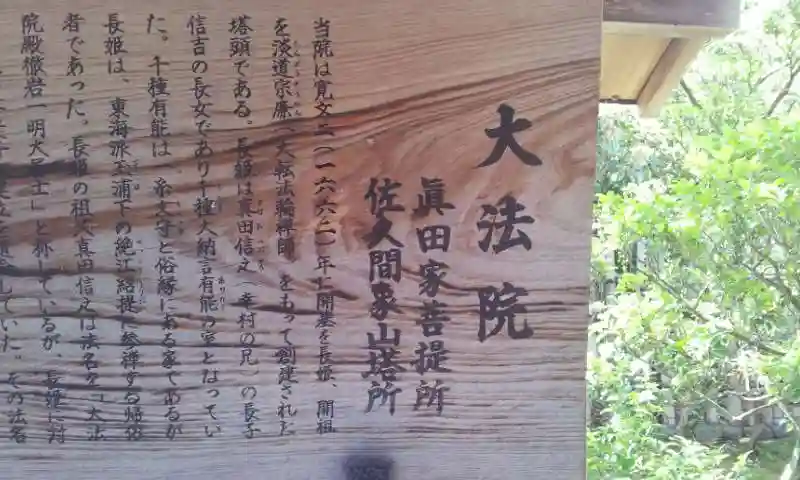 大法院
眞田家菩提所
佐久間象山塔所
当院は寛文二(一六六二)年に開基を長姫、開祖
を淡道宗廉(大転法輪禅師)をもって創建された
塔頭である。長姫は真田信之(幸村の兄)の長子
信吉の長女であり千種大納言有能の室となってい
た。千種有能は 和尚と俗縁にある家であるが
長姫は、東海派玉浦下の絶江紹提に参禅する帰依
者であった。長姫の祖父真田信之は法名を「大法
院殿徹岩一明大居士」と称しているが、長姫は対
していた。その法名